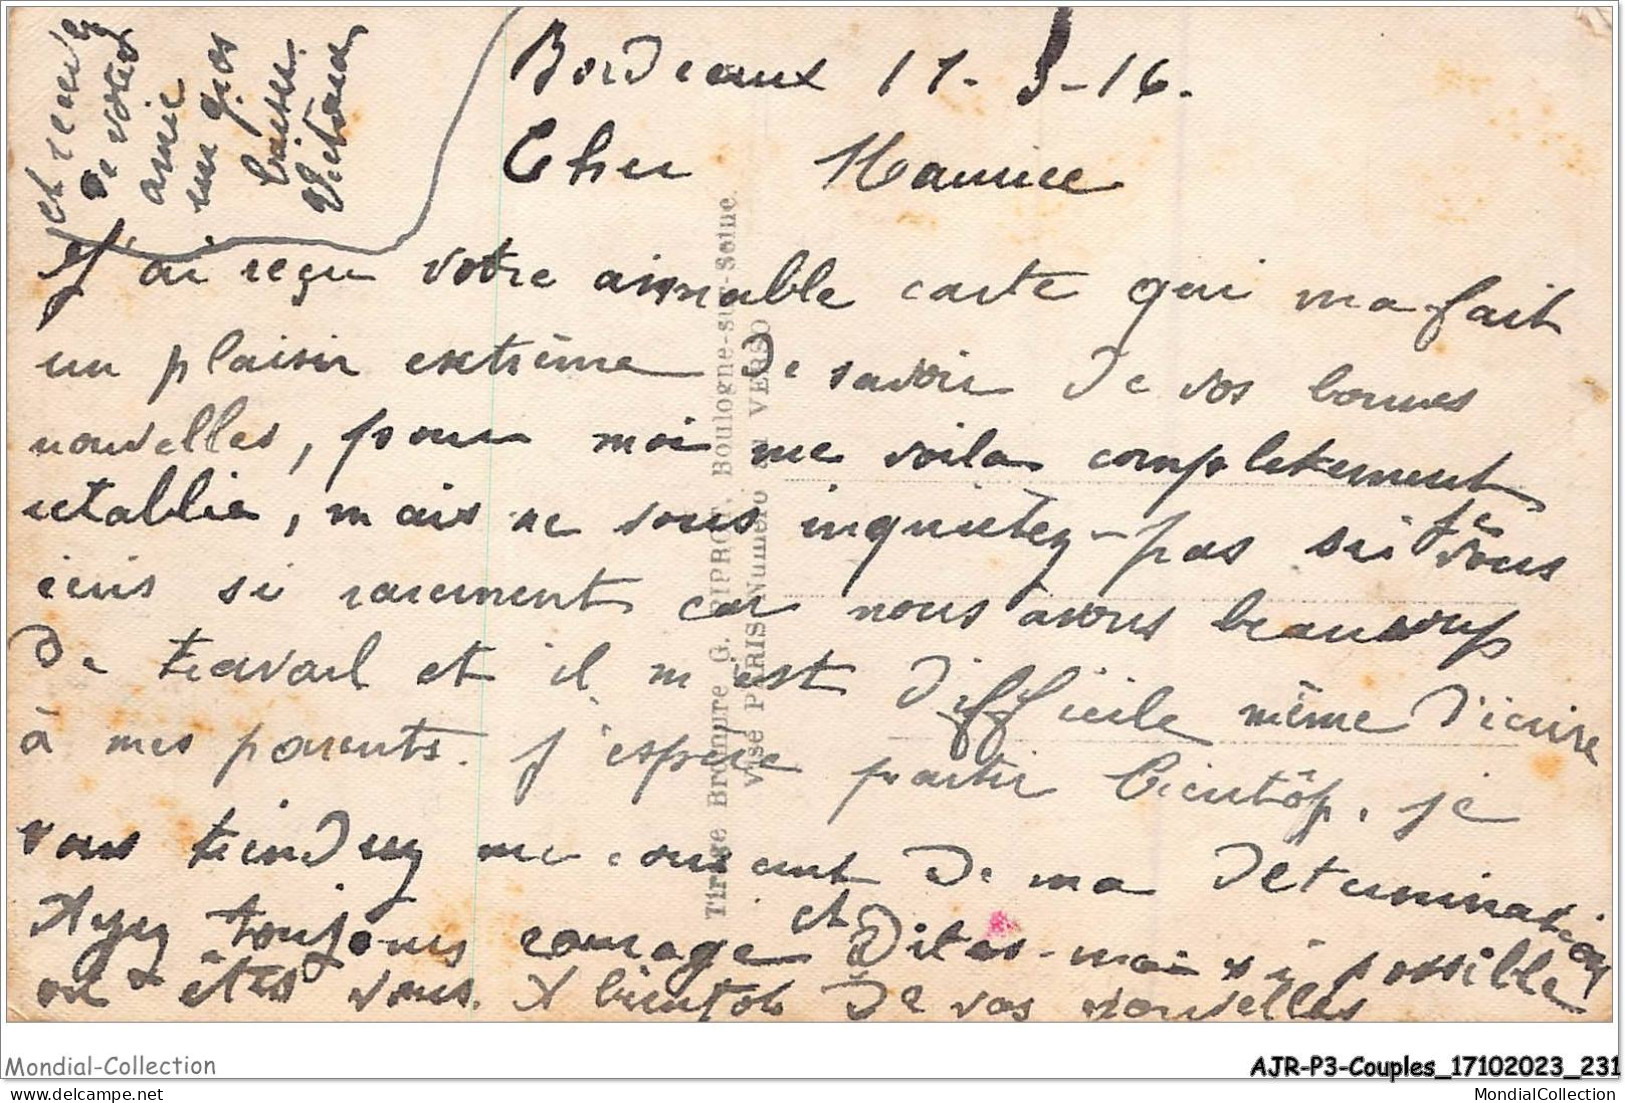 Bordeaux 11-3-16.
Cher Maurice
J'ai reçu votre aimable carte qui ma fait
un plaisir extrême de savoir de vos bonnes
nouvelles, pour moi me voila complektement
retablie, mais ne vous inquiétez-pas si je vous
écris si rarement car nous avons beaucoup
de travail et il m'est difficile même d'écrire
à mes parents. J'espère partir bientôp. je
vous tiendrez au courant de ma determination
Ayez toujours courage et Dites-moi si possible
ou êtes vous. A bientot de vos nouvelles
et recevez
de votre
amie
un gros
baiser.
Victoria
Tirage Bromure G. PIPROT, Boulogne-sur-Seine.
Visé PARIS Numéro au VERSO
Mondial-Collection
AJR-P3-Couples_17102023_231
delcampe.net
MondialCollection